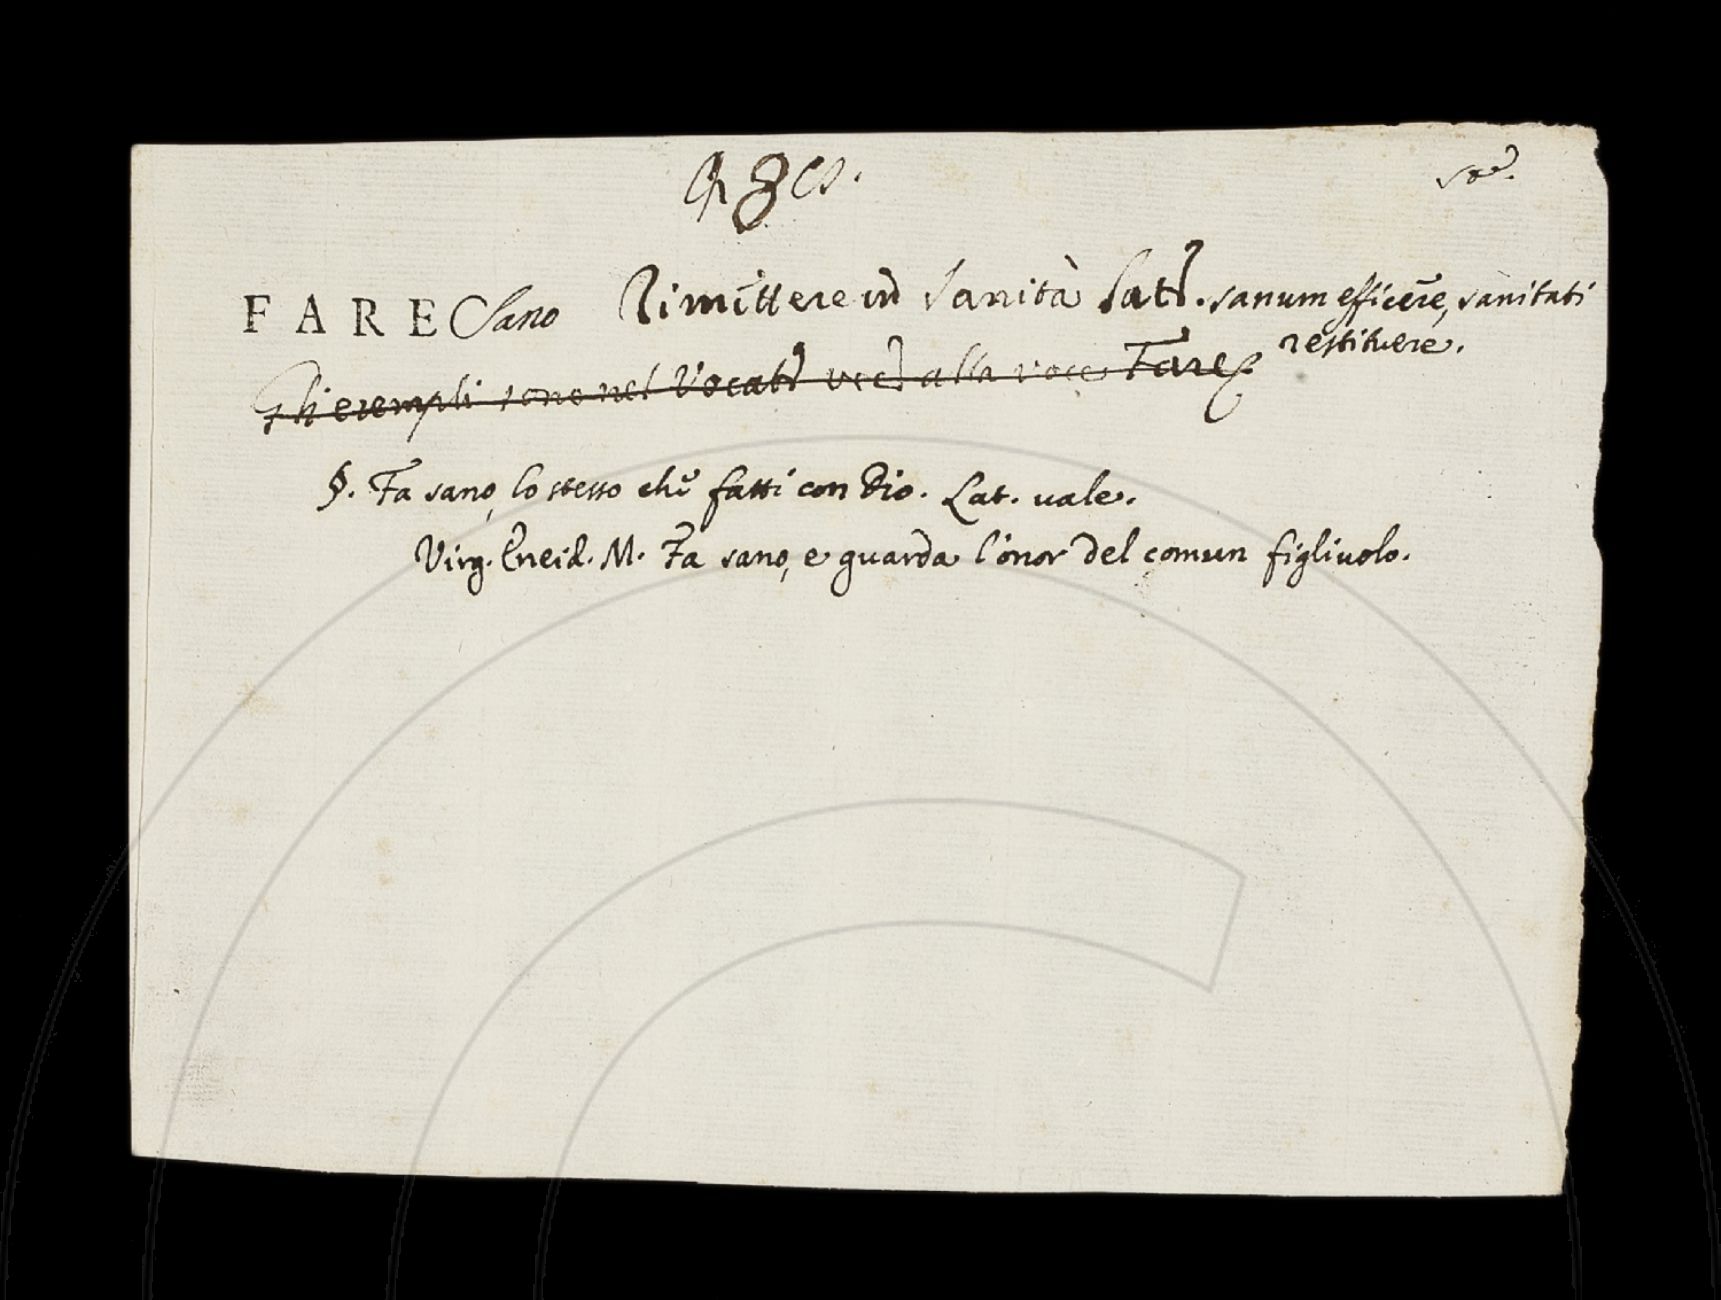 FARE Sano Rimettere in sanità Lat. sanum efficere, sanitati
restituere.
Gli exempli sono nel Vocab. ved. alla voce Fare
§. Fa sano, lo stesso che fatti con Dio. Lat. vale.
Virg. Eneid. M. Fa sano, e guarda l'onor del comun figliuolo.